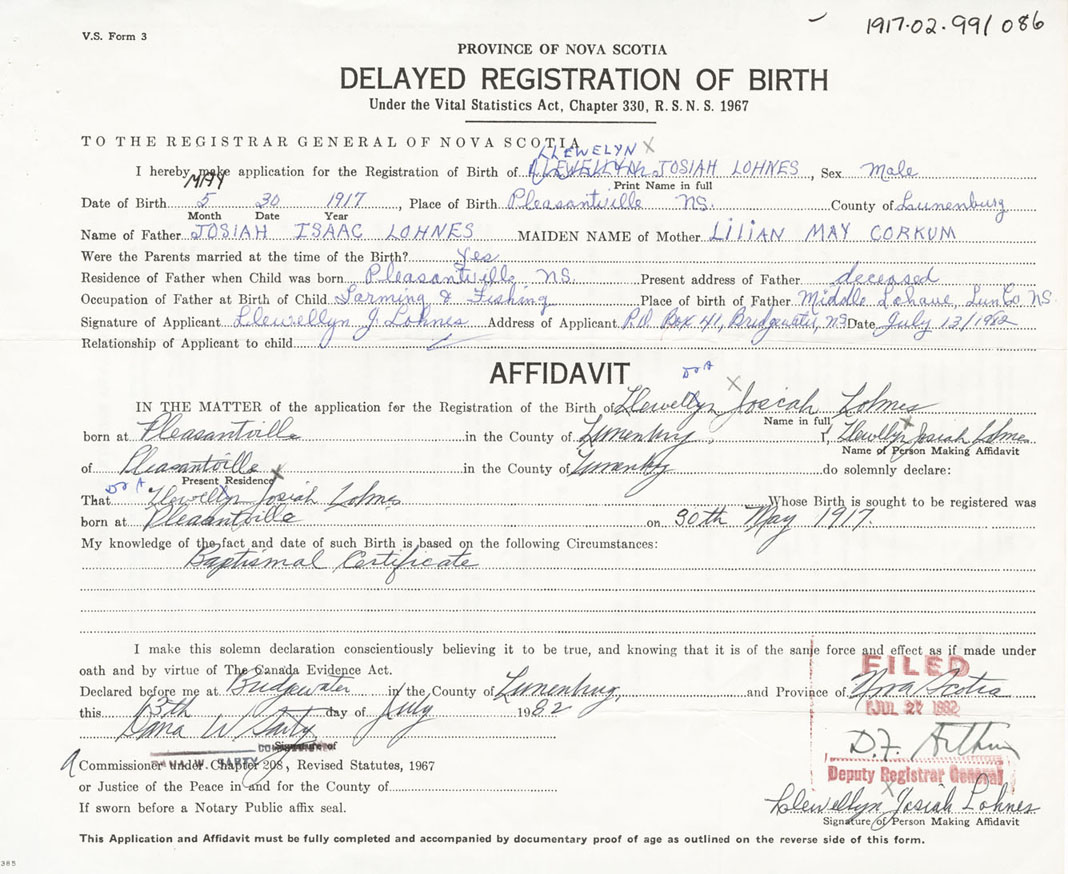 V.S. Form 3
1917·02·991086
PROVINCE OF NOVA SCOTIA
DELAYED REGISTRATION OF BIRTH
Under the Vital Statistics Act, Chapter 330, R. S. N. S. 1967
TO THE REGISTRAR GENERAL OF NOVA SCOTIA
LLEWELYN X
I hereby make application for the Registration of Birth of JOSIAH LOHNES, Sex Male
Print Name in full
MAY
Date of Birth 5 30 1917, Place of Birth Pleasantville NS. County of Lunenburg
Month Date Year
Name of Father JOSIAH ISAAC LOHNES MAIDEN NAME of Mother LILIAN MAY CORKUM
Were the Parents married at the time of the Birth? Yes
Residence of Father when Child was born Pleasantville, NS. Present address of Father deceased
Occupation of Father at Birth of Child Farming & Fishing Place of birth of Father Middle Lahave, Lun Co NS.
Signature of Applicant Llewellyn J. Lohnes Address of Applicant P.O. Box 41, Bridgewater, NS Date July 13/1982
Relationship of Applicant to child
AFFIDAVIT
DWA X
IN THE MATTER of the application for the Registration of the Birth of Llewellyn Josiah Lohnes
Name in full
born at Pleasantville in the County of Lunenburg, I, Llewllyn Josiah Lohnes
Name of Person Making Affidavit
of Pleasantville in the County of Lunenbrg do solemnly declare:
Present Residence X
DWA
That Llewellyn Josiah Lohnes Whose Birth is sought to be registered was
born at Pleasantville on 30th May 1917.
My knowledge of the fact and date of such Birth is based on the following Circumstances:
Baptismal Certificate
I make this solemn declaration conscientiously believing it to be true, and knowing that it is of the same force and effect as if made under
oath and by virtue of The Canada Evidence Act.
FILED
Declared before me at Bridgewater in the County of Lunenburg, and Province of Nova Scotia
JUL 27 1982
this 13th day of July 1982
Dana W Sarty
Signature of
DANA W. SARTY
D.F. Arthur
A Commissioner under Chapter 208, Revised Statutes, 1967
Deputy Registrar General
or Justice of the Peace in and for the County of
Llewellyn Josiah Lohnes
If sworn before a Notary Public affix seal.
Signature of Person Making Affidavit
This Application and Affidavit must be fully completed and accompanied by documentary proof of age as outlined on the reverse side of this form.
385